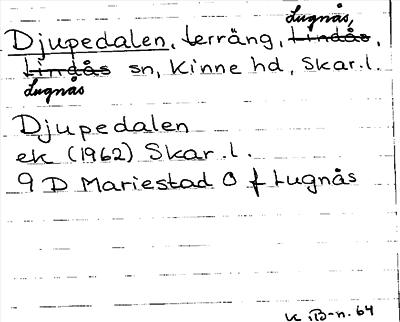 Lugnås,
Djupedalen, terräng, Lindås,
Lindås sn, Kinne hd, Skar.l.
Lugnås
Djupedalen
ek (1962) Skar.l.
9 D Mariestad O f Lugnås
K.B-n. 64